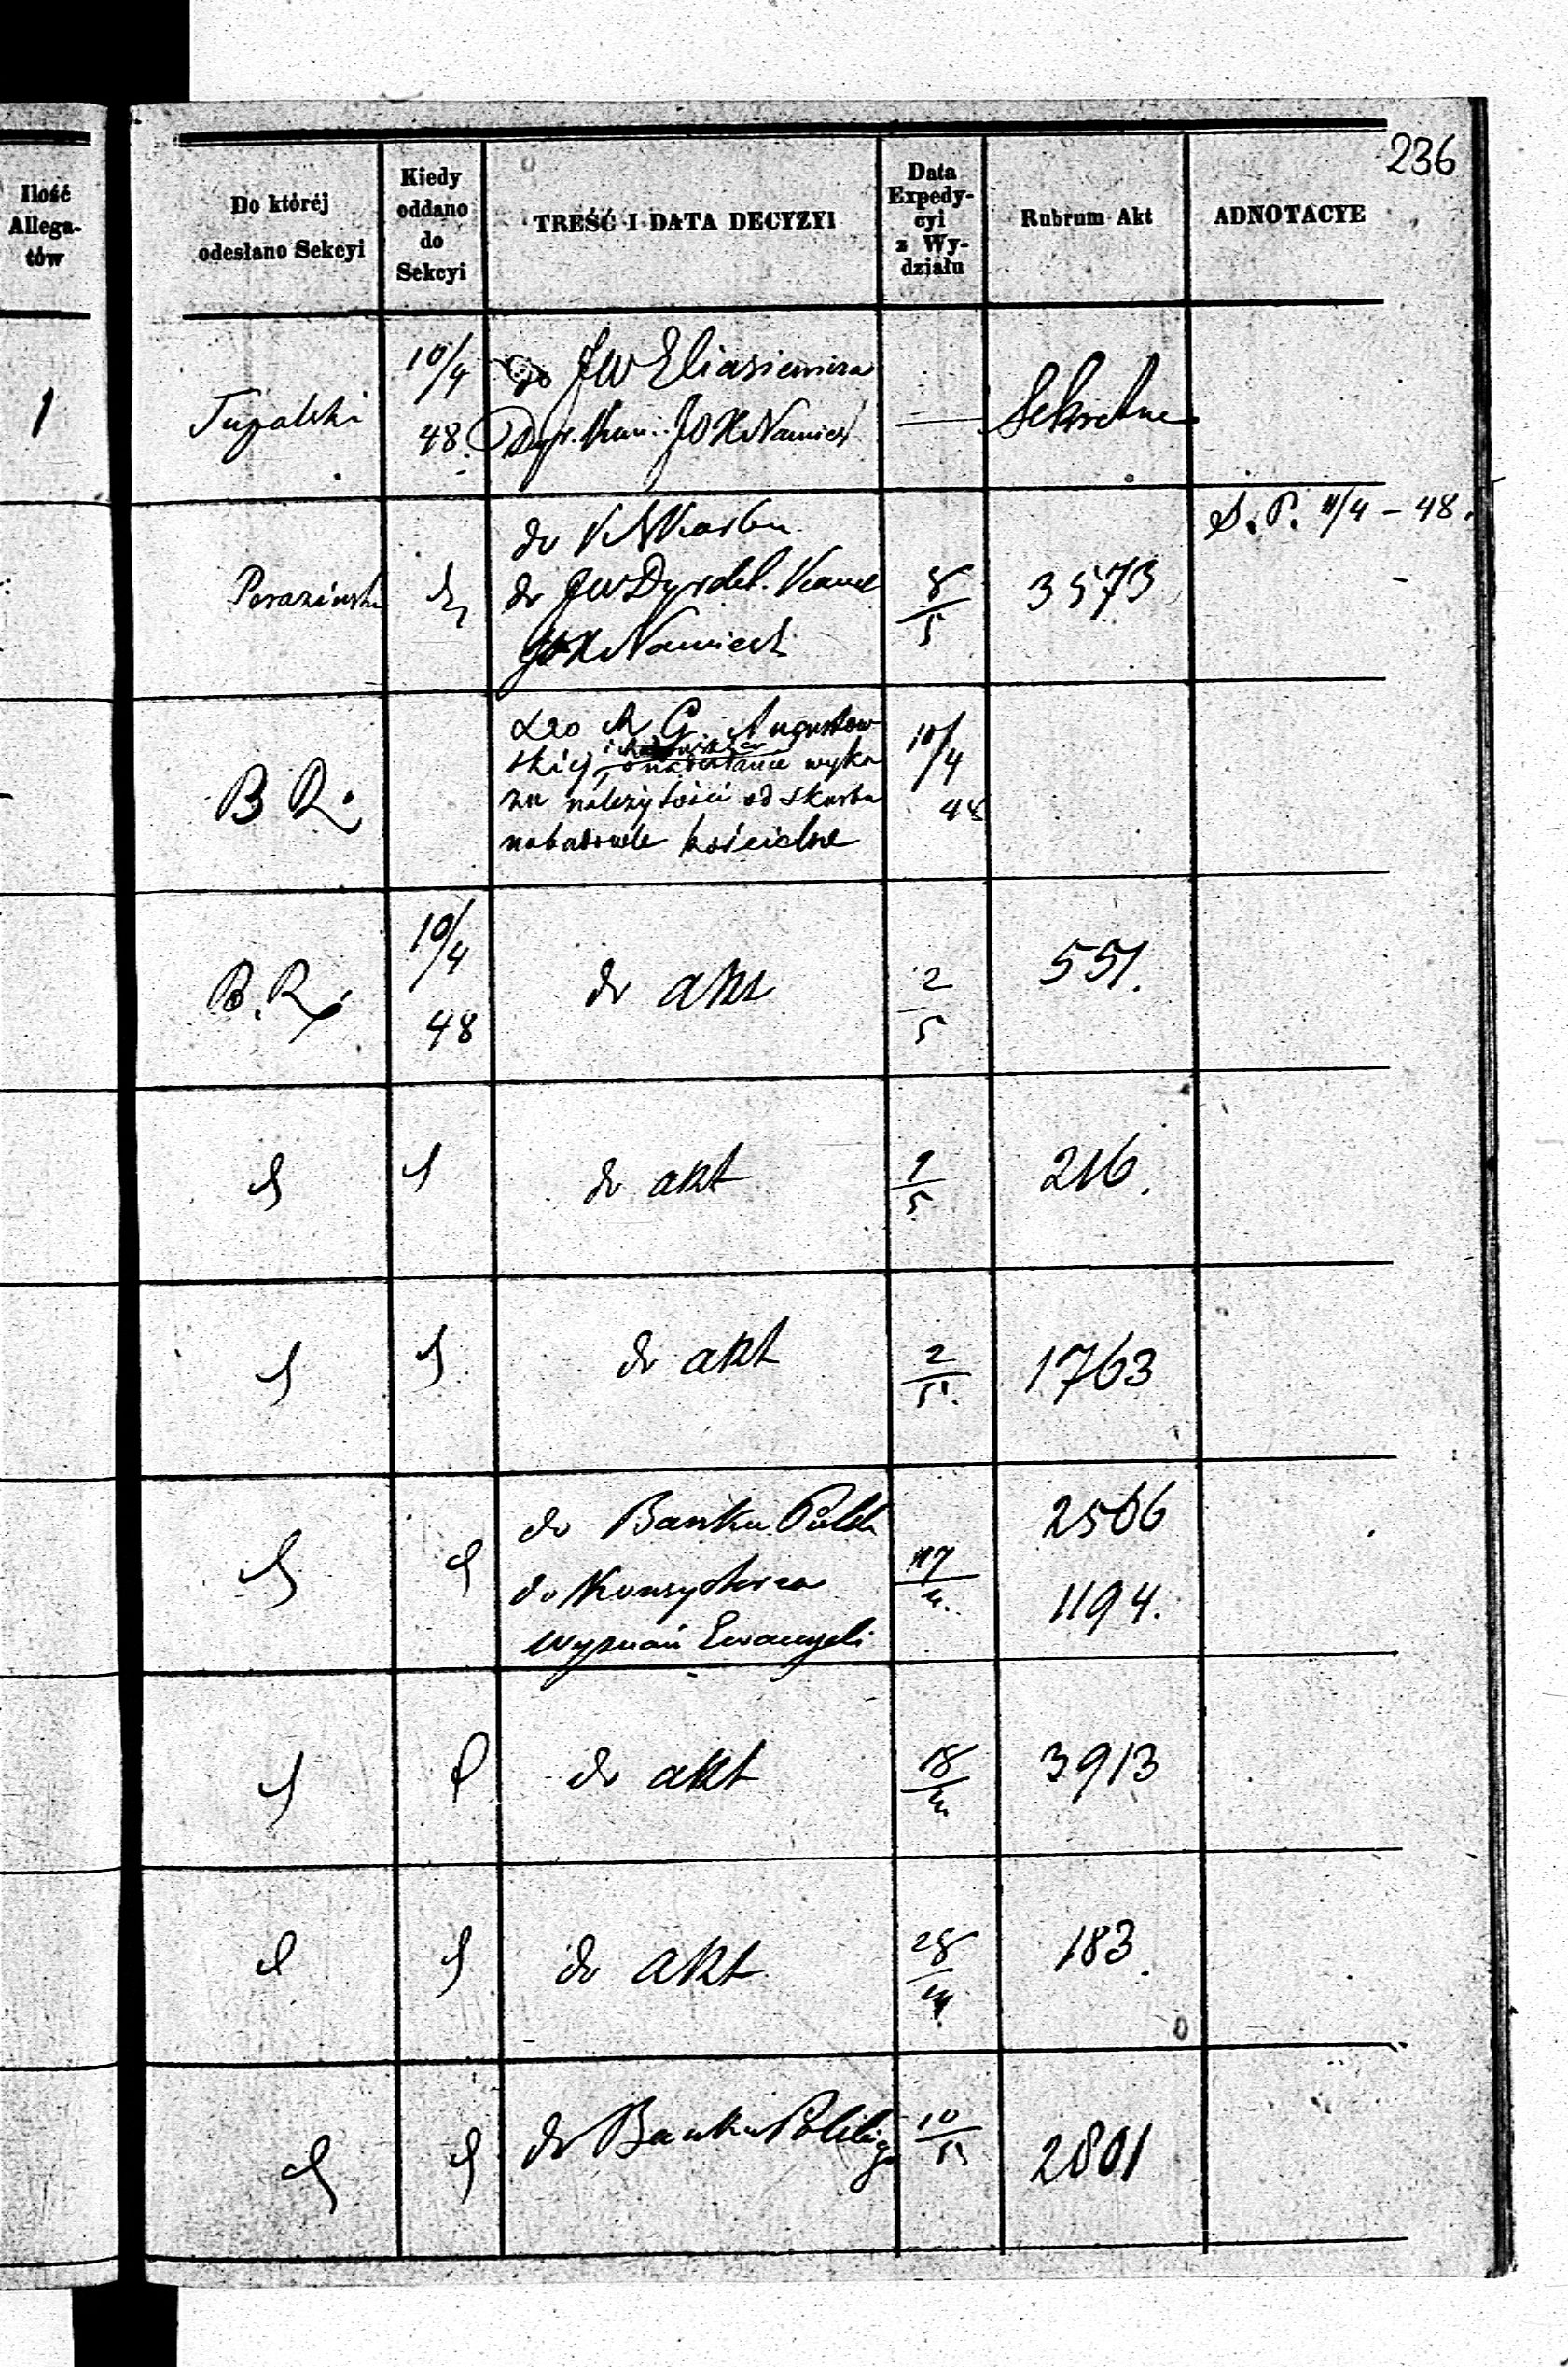 236
Ilość
Allega-
tów
Do któréj
odesłano Sekcyi
Kiedy
oddano
do
Sekcyi
TREŚĆ I DATA DECYZYI
Data
Expedy-
cyi
z Wy-
działu
Rubrum Akt
ADNOTACYE
1
Tupalski
10/4
48.
JW Eliasiewicza
JOX Namiest
—
Sekretne
do
do JW Dyrekt. Kanc
JOX Namiest
8/5
3573
S. P. 11/4 - 48.
B R.
Do R G. Augustow
skiej, o nadesłanie wyka
zu należytości od skarbu
na budowle kościelne
10/4
48
B. R.
10/4
48
do akt
2/5
551.
do akt
1/5
216.
do akt
2/5.
1763
do Banku Polsk
do Konsystorza
Wyznań Ewangeli
17/4.
2506
1194.
do akt
18/4
3913
do akt
28/4
183.
do Banku Polskiego
10/5
2801